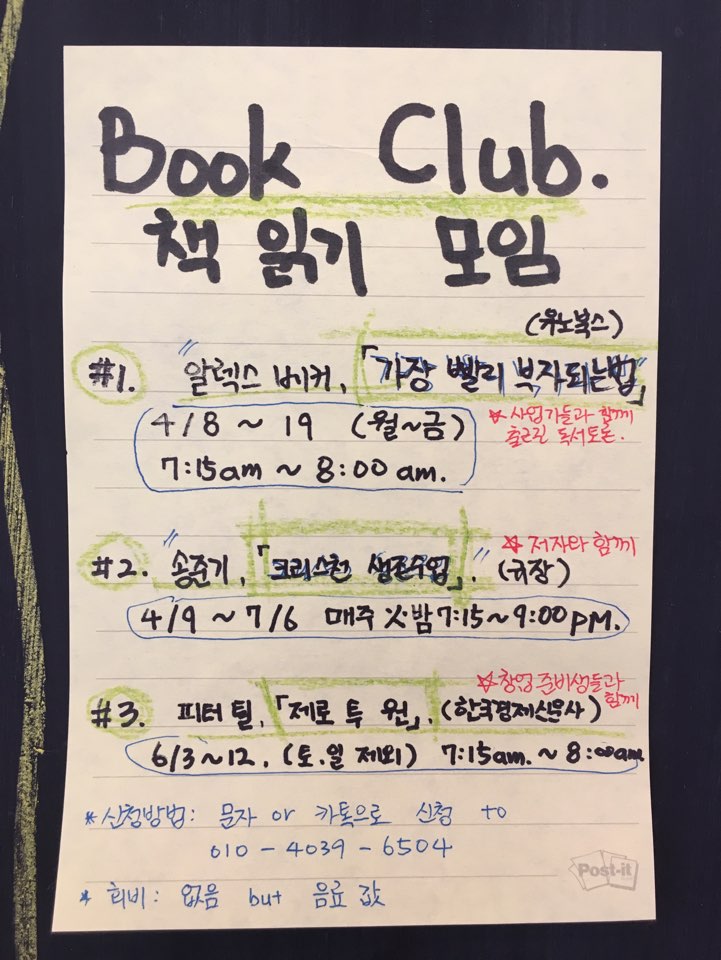 Book Club.
책 읽기 모임
(유노북스)
#1. "알렉스 베커, 「가장 빨리 부자되는법」"
4/8 ~ 19 (월~금)
7:15am ~ 8:00 am.
☆ 사업가들과 함께
출근길 독서토론.
☆ 저자와 함께
#2. "송준기, 「크리스천 생존수업」". (규장)
4/9 ~ 7/6 매주 火밤 7:15~9:00 PM.
☆ 창업 준비생들과
함께
#3. 피터 틸, 「제로 투 원」. (한국경제신문사)
6/3~12. (토.일 제외) 7:15am. ~ 8:00am
* 신청방법: 문자 or 카톡으로 신청 to
010-4039-6504
* 회비: 없음 but 음료값
Post-it